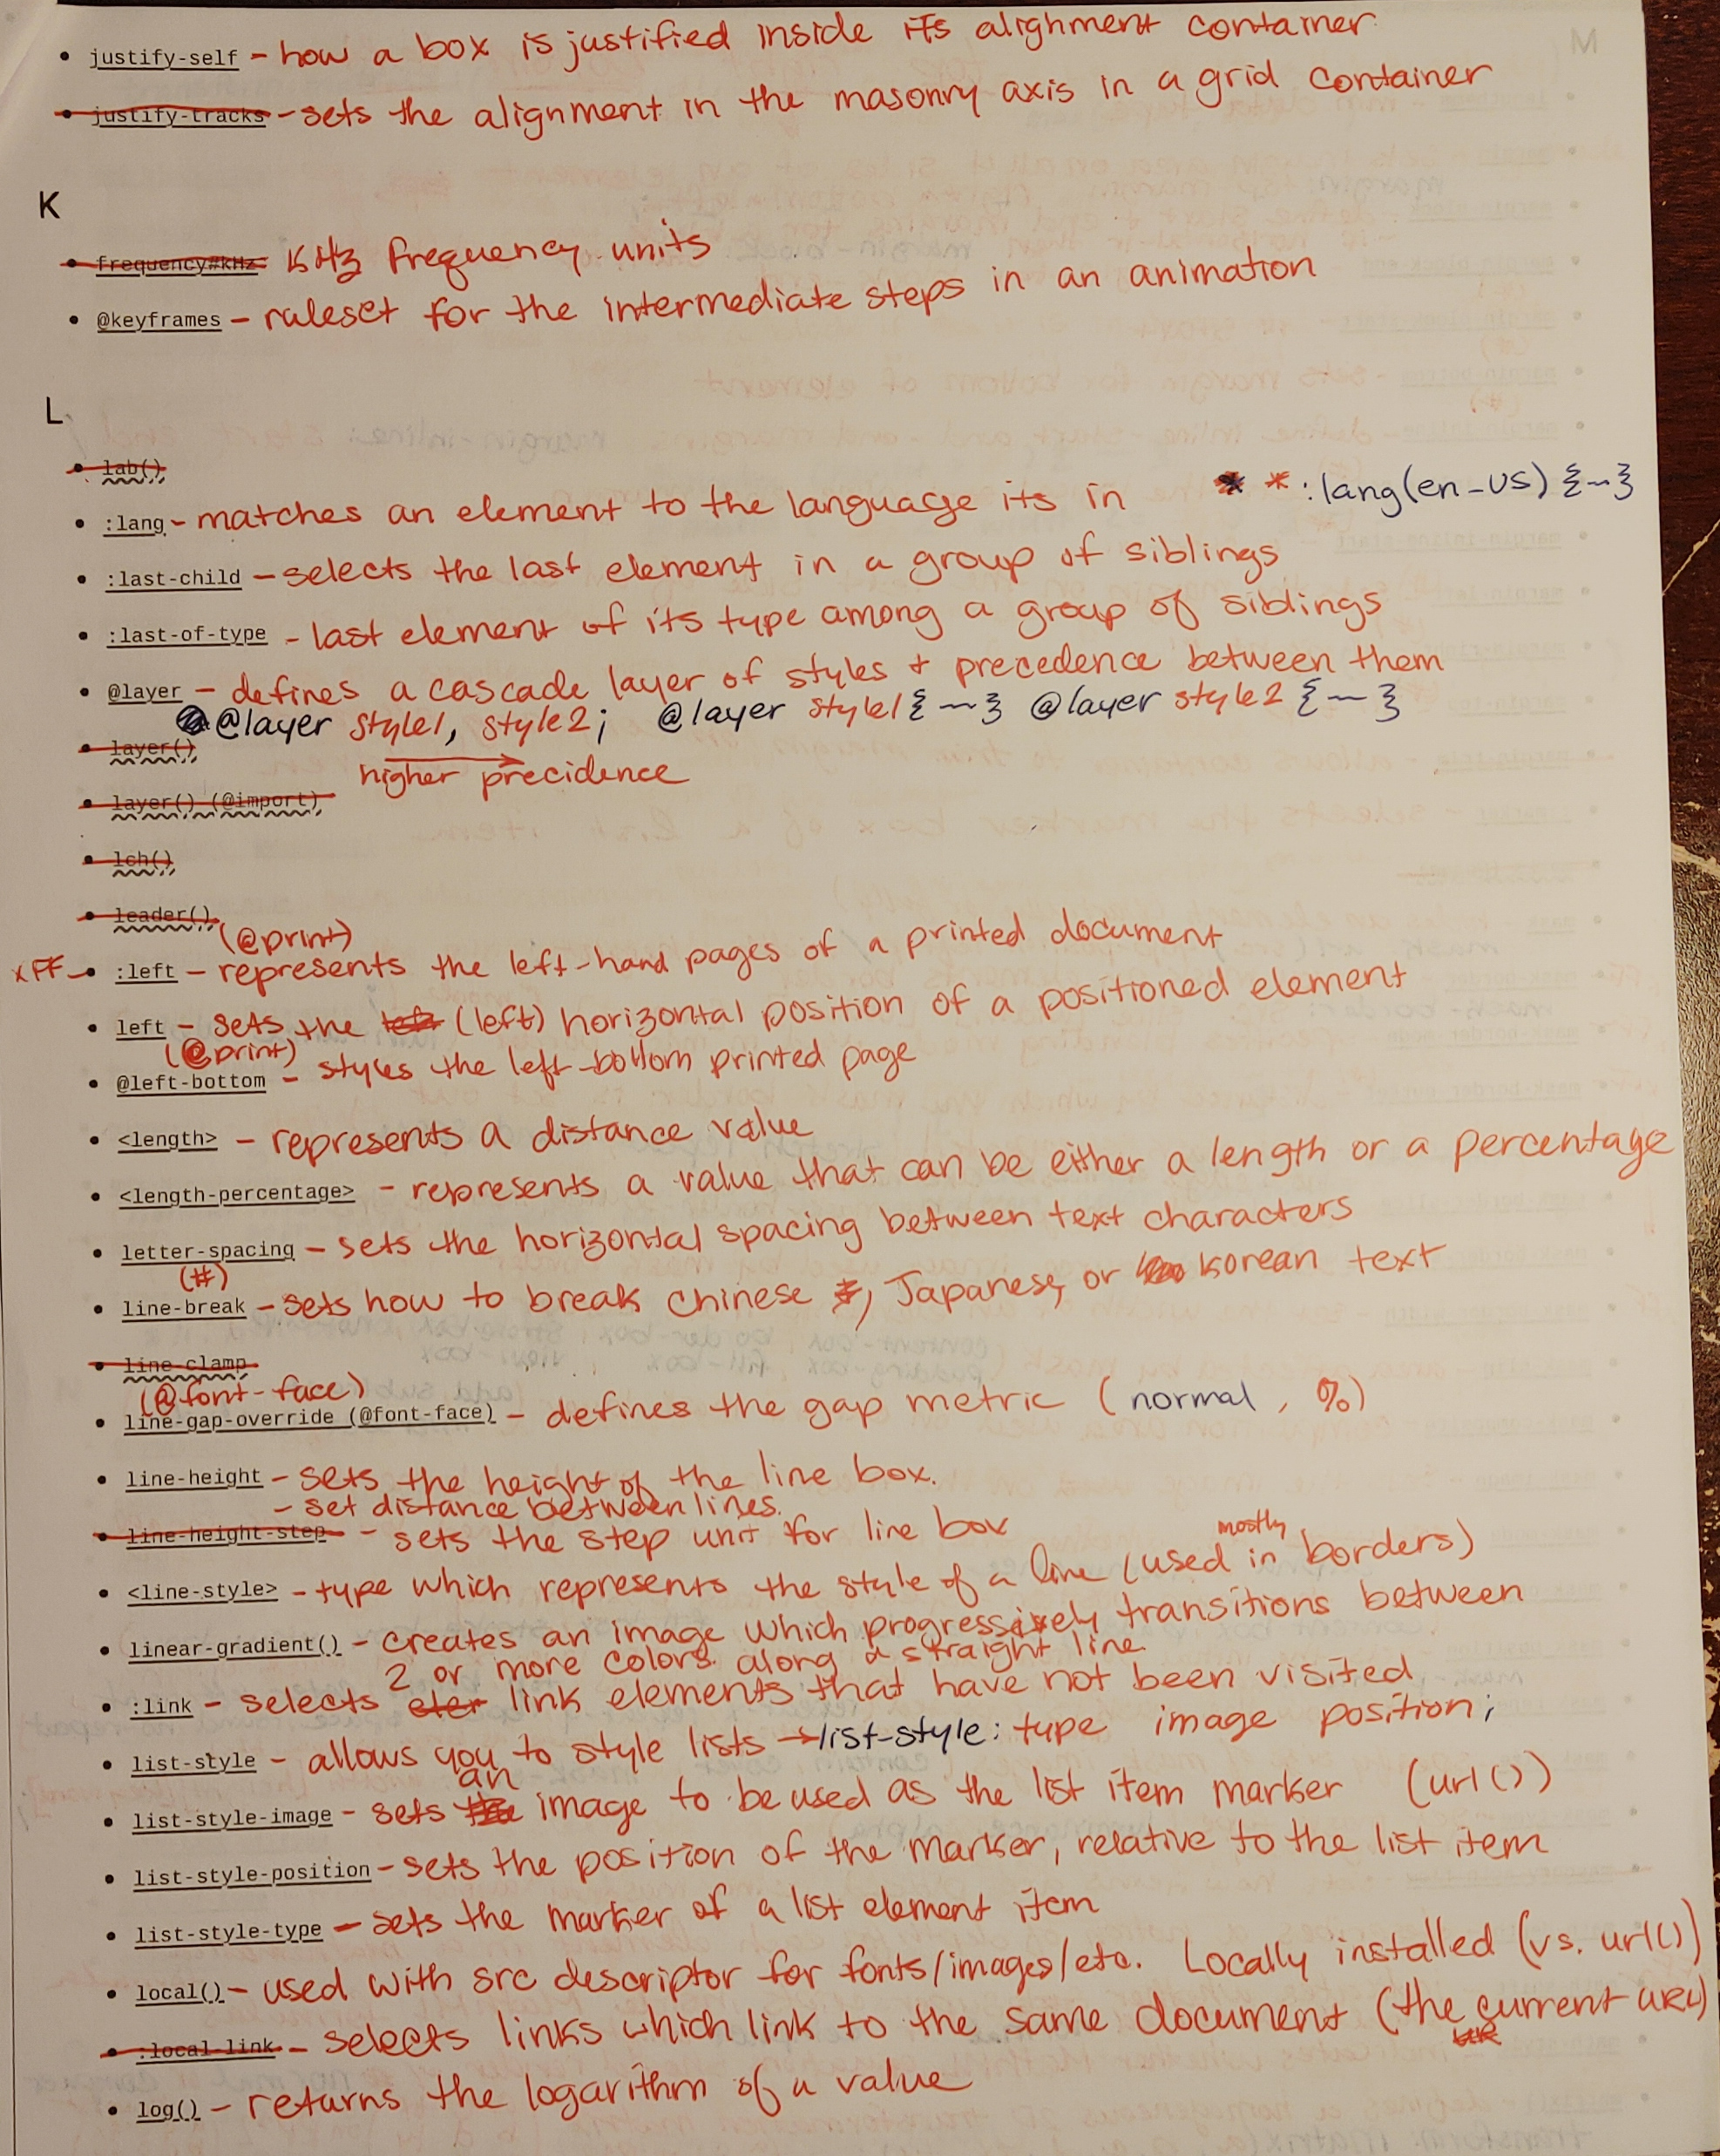 • justify-self - how a box is justified inside its alighment container
• justify-tracks - sets the alignment in the masonry axis in a grid container
K
• frequency#kHz KHz frequency units
• @keyframes - ruleset for the intermediate steps in an animation
L
• lab()
• :lang - matches an element to the language its in * *:lang(en-us) {~}
• :last-child - selects the last element in a group of siblings
• :last-of-type - last element of its type among a group of siblings
• @layer - defines a cascade layer of styles + precedence between them
@layer style1, style2; @layer style1 {~} @layer style2 {~}
• layer()
higher precidence
• layer() (@import)
• lch()
• leader()
(@print)
xFF • :left - represents the left-hand pages of a printed document
• left - sets the (left) horizontal position of a positioned element
(@print)
• @left-bottom - styles the left-bottom printed page
• <length> - represents a distance value
• <length-percentage> - represents a value that can be either a length or a percentage
• letter-spacing - sets the horizontal spacing between text characters
(#)
• line-break - sets how to break chinese, Japanese, or korean text
• line-clamp
(@font-face)
• line-gap-override (@font-face) - defines the gap metric (normal, %)
• line-height - sets the height of the line box.
- set distance between lines.
• line-height-step - sets the step unit for line box
mostly
• <line-style> - type which represents the style of a line (used in borders)
• linear-gradient() - creates an image which progressively transitions between
2 or more colors along a straight line
• :link - selects link elements that have not been visited
• list-style - allows you to style lists → list-style: type image position;
an
• list-style-image - sets the image to be used as the list item marker (url())
• list-style-position - sets the position of the marker, relative to the list item
• list-style-type - sets the marker of a list element item
• local() - used with src descriptor for fonts/images/etc. Locally installed (vs. url())
• :local-link - selects links which link to the same document (the current URL)
• log() - returns the logarithm of a value